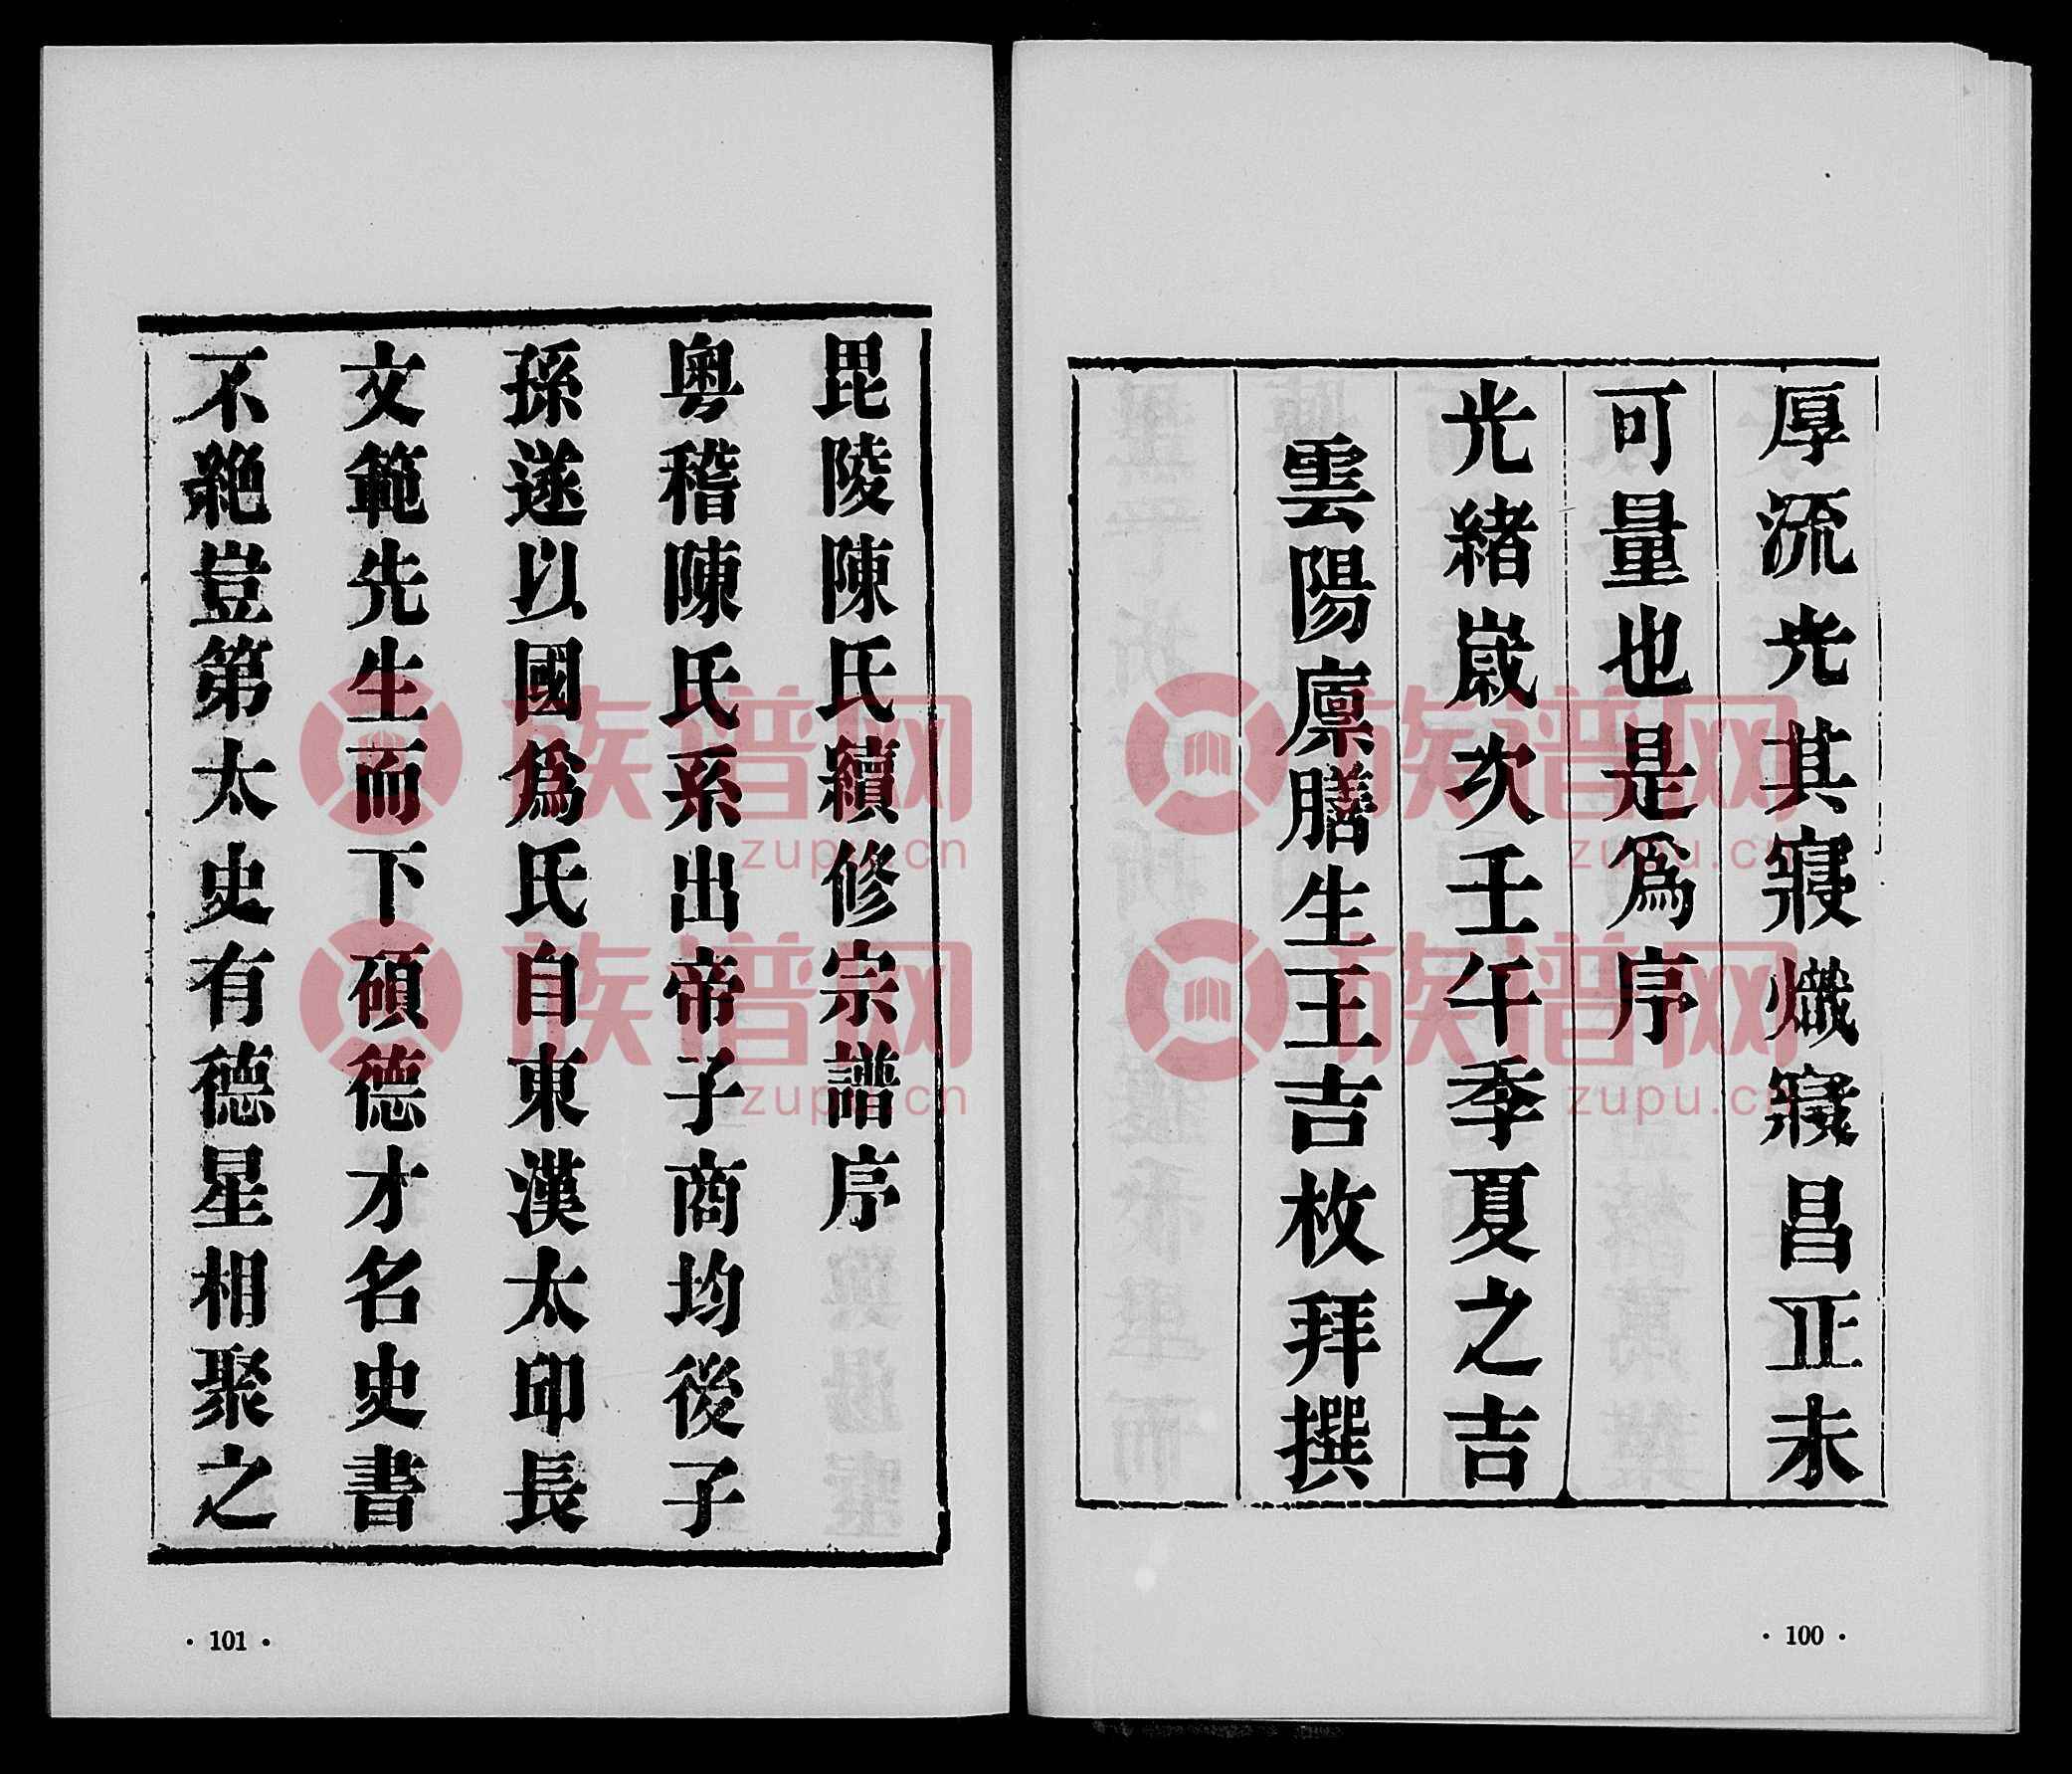 厚流光其寖熾寖昌正未
可量也是爲序
光緒歲次壬午季夏之吉
雲陽廩膳生王吉枚拜撰
· 100 ·
毘陵陳氏續修宗譜序
粤稽陳氏系出帝子商均後子
孫遂以國爲氏自東漢太邱長
文範先生而下碩德才名史書
不絶豈第太史有德星相聚之
· 101 ·
族谱网
zupu.cn
族谱网
zupu.cn
族谱网
zupu.cn
族谱网
zupu.cn